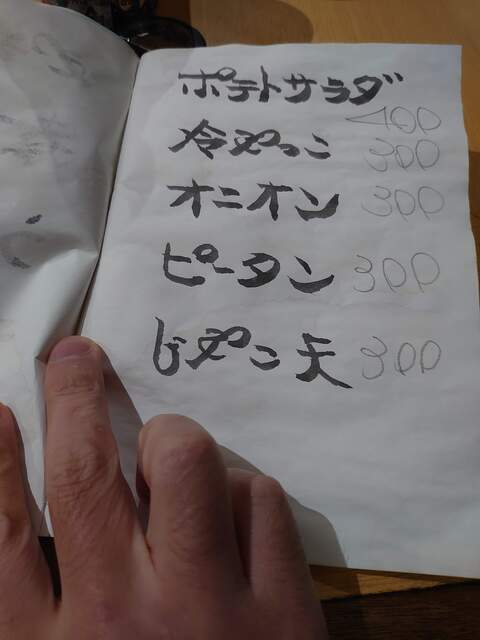 ポテトサラダ 400
冷やっこ 300
オニオン 300
ピータン 300
じゃこ天 300